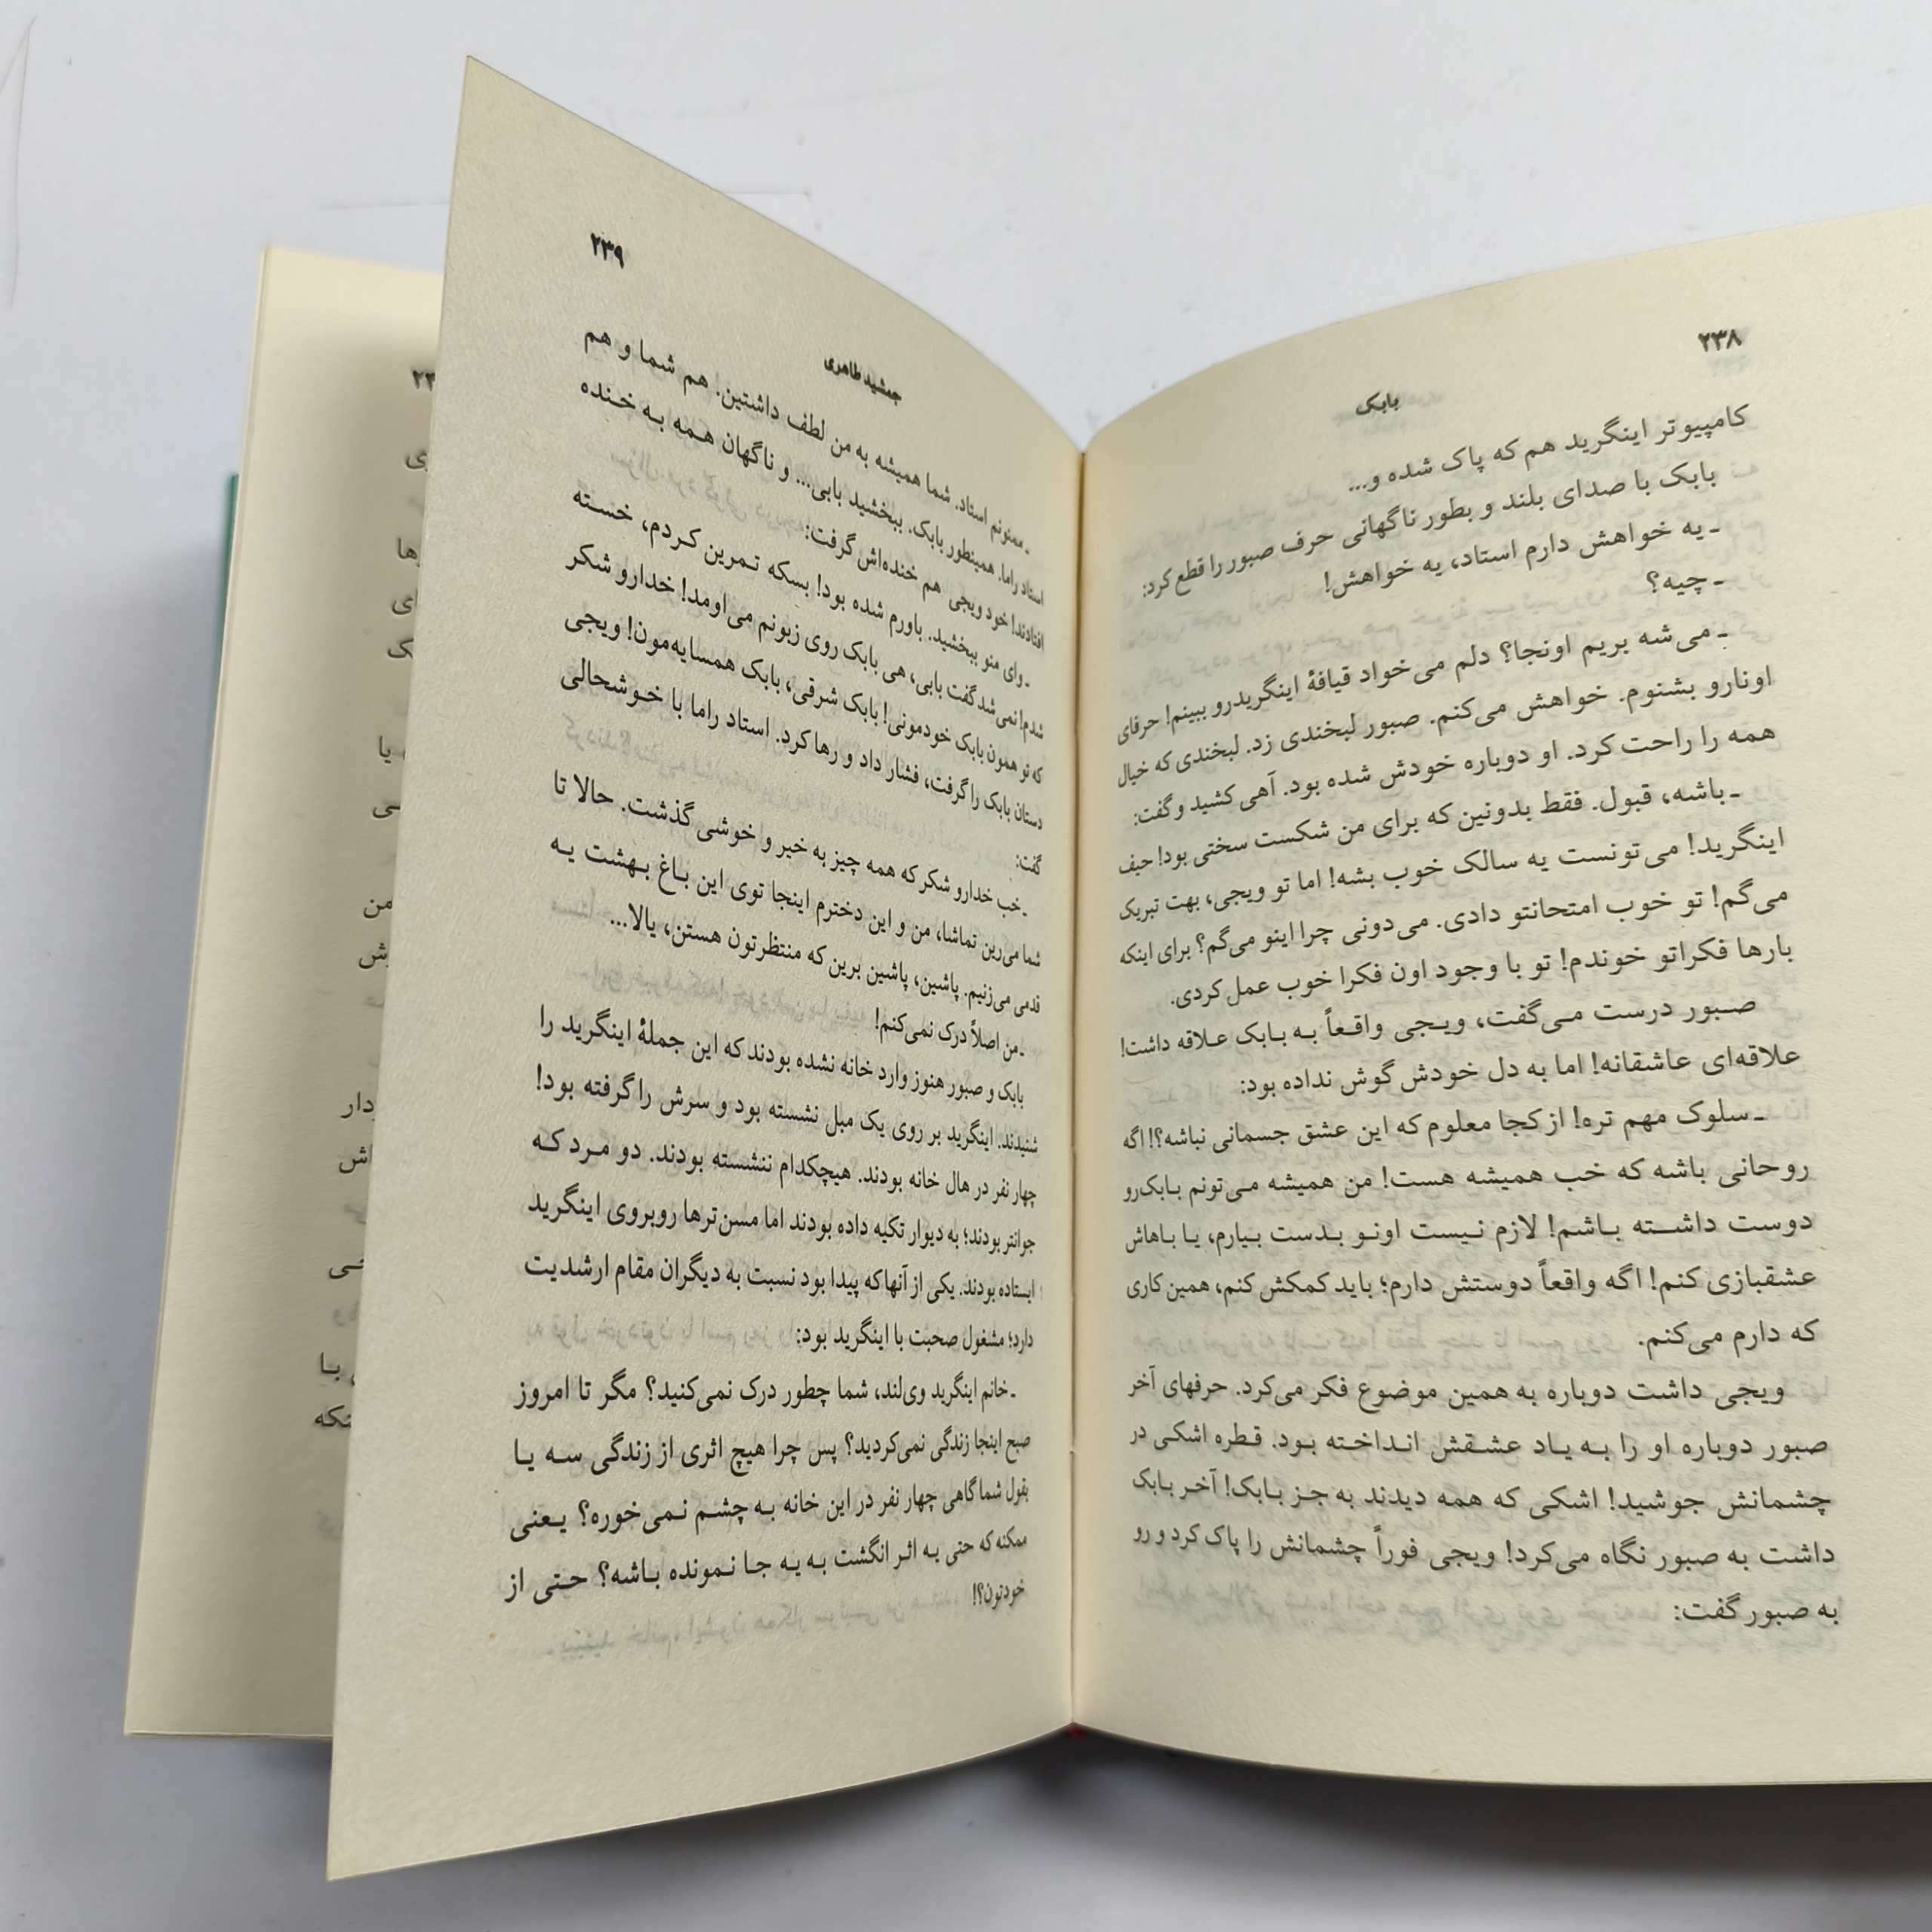 ۲۳۸
بابک
کامپیوتر اینگرید هم که پاک شده و...
بابک با صدای بلند و بطور ناگهانی حرف صبور را قطع کرد:
ـ یه خواهش دارم استاد، یه خواهش!
ـ چیه؟
ـ می‌شه بریم اونجا؟ دلم می‌خواد قیافهٔ اینگریدرو ببینم! حرفای
اونارو بشنوم. خواهش می‌کنم. صبور لبخندی زد. لبخندی که خیال
همه را راحت کرد. او دوباره خودش شده بود. آهی کشید و گفت:
ـ باشه، قبول. فقط بدونین که برای من شکست سختی بود! حیف
اینگرید! می‌تونست یه سالک خوب بشه! اما تو ویجی، بهت تبریک
می‌گم! تو خوب امتحانتو دادی. می‌دونی چرا اینو می‌گم؟ برای اینکه
بارها فکراتو خوندم! تو با وجود اون فکرا خوب عمل کردی.
صبور درست می‌گفت، ویجی واقعاً به بابک علاقه داشت!
علاقه‌ای عاشقانه! اما به دل خودش گوش نداده بود:
ـ سلوک مهم تره! از کجا معلوم که این عشق جسمانی نباشه؟! اگه
روحانی باشه که خب همیشه هست! من همیشه می‌تونم بابک‌رو
دوست داشته باشم! لازم نیست اونو بدست بیارم، یا باهاش
عشقبازی کنم! اگه واقعاً دوستش دارم؛ باید کمکش کنم، همین کاری
که دارم می‌کنم.
ویجی داشت دوباره به همین موضوع فکر می‌کرد. حرفهای آخر
صبور دوباره او را به یاد عشقش انداخته بود. قطره اشکی در
چشمانش جوشید! اشکی که همه دیدند به جز بابک! آخر بابک
داشت به صبور نگاه می‌کرد! ویجی فوراً چشمانش را پاک کرد و رو
به صبور گفت:
۲۳۹
جمشید طاهری
ـ ممنونم استاد. شما همیشه به من لطف داشتین. هم شما و هم
استاد راما. همینطور بابک. ببخشید بابی... و ناگهان همه به خنده
افتادند! خود ویجی هم خنده‌اش گرفت:
ـ وای منو ببخشید. باورم شده بود! بسکه تمرین کردم، خسته
شدم! نمی‌شد گفت بابی، هی بابک روی زبونم می‌اومد! خدارو شکر
که تو همون بابک خودمونی! بابک شرقی، بابک همسایه‌مون! ویجی
دستان بابک را گرفت، فشار داد و رها کرد. استاد راما با خوشحالی
گفت:
ـ خب خدارو شکر که همه چیز به خیر و خوشی گذشت. حالا تا
شما می‌رین تماشا، من و این دخترم اینجا توی این باغ بهشت یه
قدمی می‌زنیم. پاشین، پاشین برین که منتظرتون هستن، یالا...
ـ من اصلاً درک نمی‌کنم!
بابک و صبور هنوز وارد خانه نشده بودند که این جملهٔ اینگرید را
شنیدند. اینگرید بر روی یک مبل نشسته بود و سرش را گرفته بود!
چهار نفر در هال خانه بودند. هیچکدام ننشسته بودند. دو مرد که
جوانتر بودند؛ به دیوار تکیه داده بودند اما مسن‌ترها روبروی اینگرید
ایستاده بودند. یکی از آنها که پیدا بود نسبت به دیگران مقام ارشدیت
دارد؛ مشغول صحبت با اینگرید بود:
ـ خانم اینگرید وی‌لند، شما چطور درک نمی‌کنید؟ مگر تا امروز
صبح اینجا زندگی نمی‌کردید؟ پس چرا هیچ اثری از زندگی سه یا
بقول شما گاهی چهار نفر در این خانه به چشم نمی‌خوره؟ یعنی
ممکنه که حتی یه اثر انگشت به یه جا نمونده باشه؟ حتی از
خودتون؟!